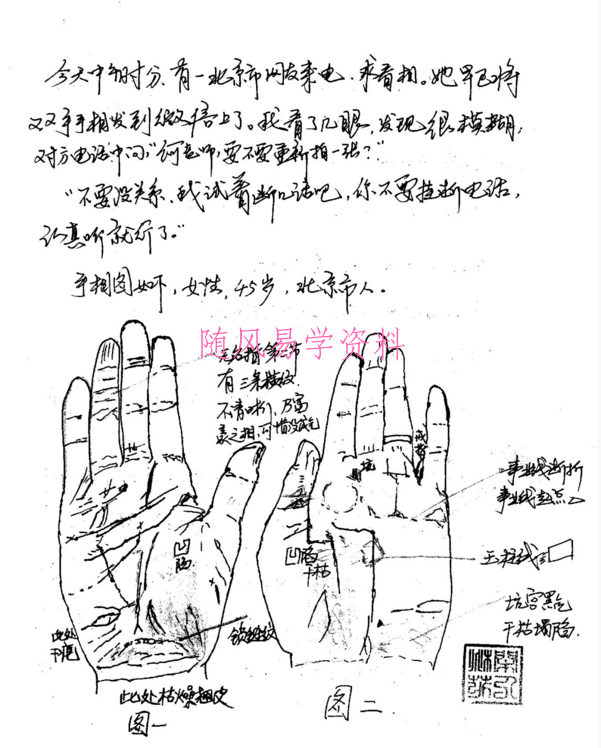 今天中午时分,有一北京市网友来电,求看相。她早已将
双手手相发到微信上了。我看了几眼,发现很模糊,
对方电话中问:"何老师,要不要重新拍一张?"
"不要没关系,我试着断几话吧,你不要挂断电话,
认真听就行了。"
手相图如下,女性,45岁,北京市人。
随风易学资料
无名指第二节
有三条横纹
戒指
坑
事业线断折
事业线起点
凹陷
凹陷
干枯
玉柱线
坎宫黑气
干枯塌陷
此处
锁链纹
此处枯燥
图一
图二